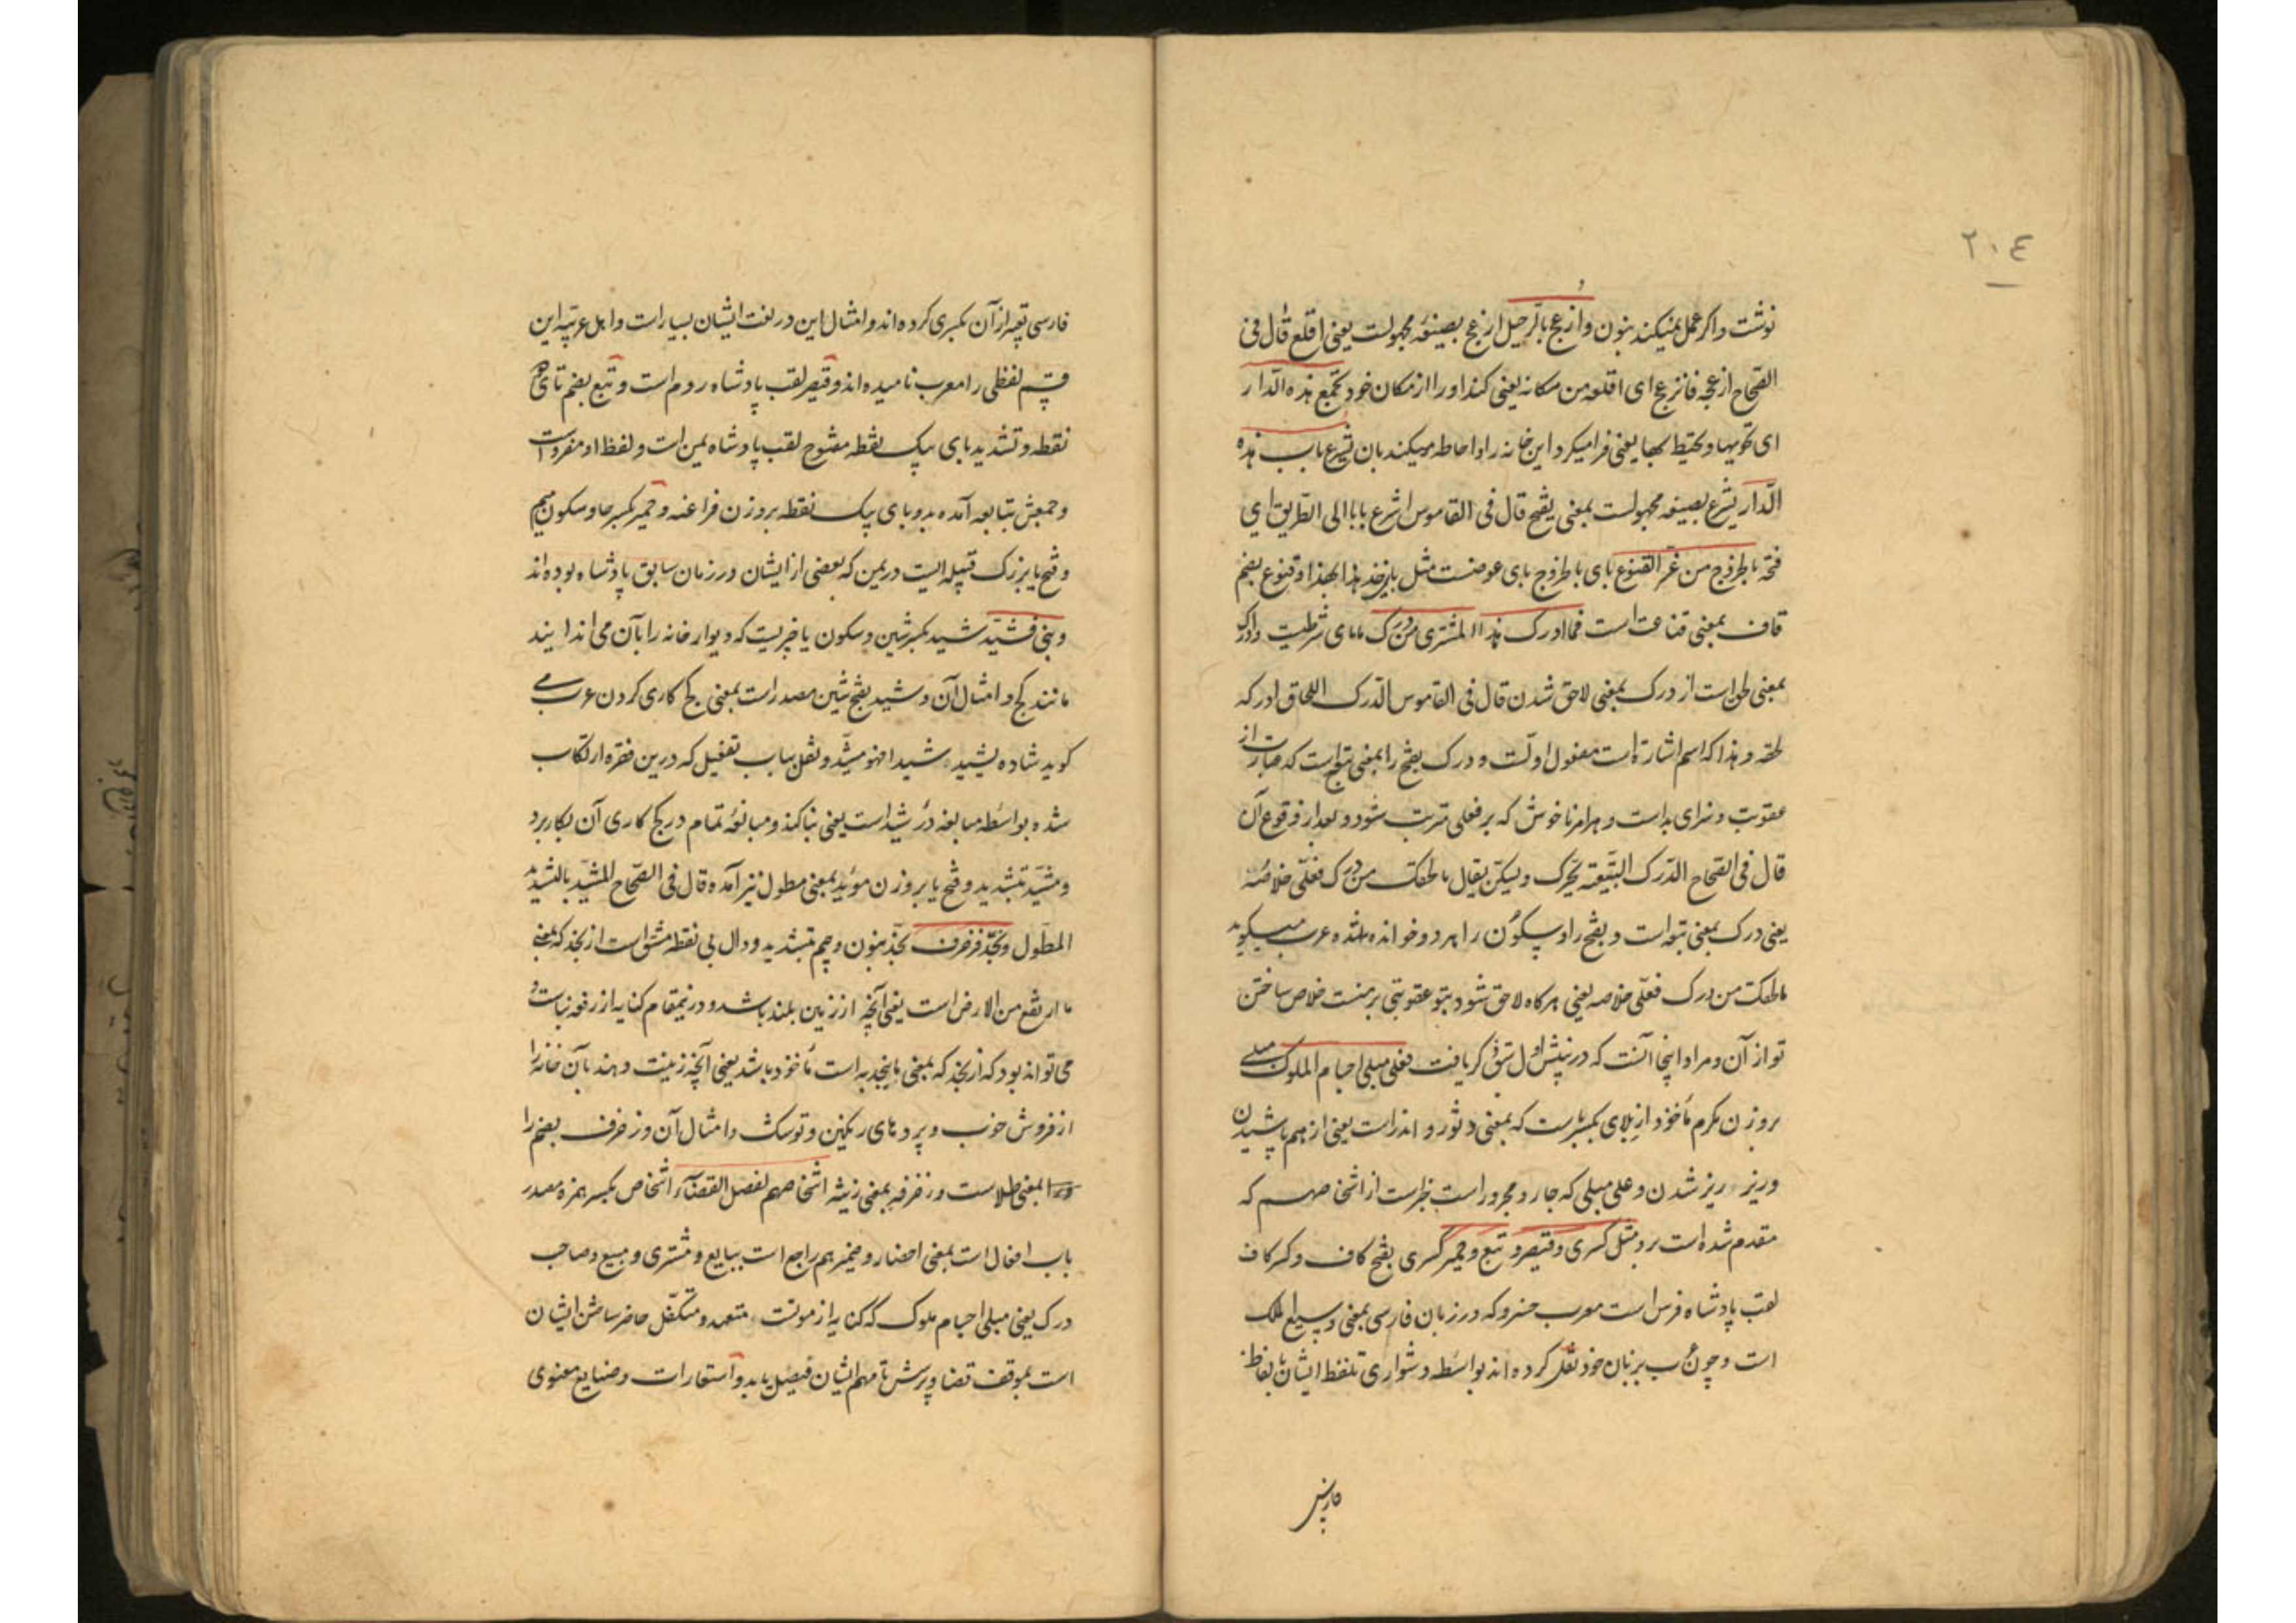 ٢٠٤
نوشت واکر عمل نمیکند بنون وازعج بالرحیل ازعج بصیغهٔ مجهولست یعنی اقلع قال فی
الصّحاح ازعجه فانزعج ای اقلعه من مکانه یعنی کند او را از مکان خود تجمع هذه الدّار
ای تحویها و تحیط بها یعنی فرا میکرد این خانه را و احاطه میکند بان یشرع باب هذه
الدّار یشرع بصیغه مجهولست بمعنی یفتح قال فی القاموس اشرع بابا الی الطّریق ای
فتحه بالخروج من عزّ القنوع بای بالخروج بای عوضست مثل هذا بهذا و قنوع بضم
قاف بمعنی قناعت است فما ادرک هذا المشتری من درک مامای شرطیت وادرک
بمعنی لحق است از درک بمعنی لاحق شدن قال فی القاموس الدّرک اللحاق ادرکه
لحقه و هذا که اسم اشارة است مفعول اولست و درک بفتح را بمعنی است که عبارت از
عقوبت و سزای بد است و هر امر ناخوش که بر فعلی مترتب شود و بعد از وقوع آن
قال فی الصّحاح الدّرک التّبعة یحرّک ویسکن یقال مالحقک من درک فعلیّ خلاصه
یعنی درک بمعنی تبعه است و بفتح را و سکون را هر دو خوانده شده عرب میکوید
مالحقک من درک فعلیّ خلاصه یعنی هرکاه لاحق شود بتو عقوبتی بر منست خلاص ساختن
تو از آن و مراد اینجا آنست که در پیش اول کریافت فعلی مبلی اجسام الملوک مبلی
بروزن مکرم ماخوذ از بلای بکسر است که بمعنی دثور و اندراست یعنی از هم پاشیدن
وریز ریز شدن وعلی مبلی که جار و مجرور است خبر است از اشخاصهم که
مقدم شده است برو مثل کسری وقیصر و تبع وحمیر کسری بفتح کاف و کسر کاف
لقب پادشاه فرس است معرب خسرو که در زبان فارسی بمعنی وسیع الملک
است و چون عرب بزبان خود نقل کرده اند بواسطه دشواری تلفظ ایشان بلفظ
فارسی
فارسی تعبیر از آن بکسری کرده اند و امثال این در لغت ایشان بسیار است و اهل عربیّه این
قسم لفظی را معرب نامیده اند وقیصر لقب پادشاه روم است و تبع بضم تای دو
نقطه و تشدید بای یک نقطه مفتوح لقب پادشاه یمن است و لفظ او مفرد است
و جمعش تبابعه آمده بدو بای یک نقطه بروزن فراعنه و حمیر بکسر حا و سکون میم
و فتح یا بزرک قبیله ایست در یمن که بعضی از ایشان در زمان سابق پادشاه بوده اند
وبنی فشیّد شید بکسر شین و سکون یا چیزیست که دیوار خانه را بآن می اندایند
مانند کج و امثال آن و شید بفتح شین مصدر است بمعنی کج کاری کردن عرب می
کوید شاده یشیده شیدا فهو مشید و نقل بباب تفعیل که درین فقره ارتکاب
شده بواسطه مبالغه در شید است یعنی بنا کند و مبالغه تمام در کج کاری آن بکار برد
و مشیّد بتشدید و فتح یا بروزن مؤید بمعنی مطول نیز آمده قال فی الصّحاح المشیّد بالتشدید
المطوّل ونجّد فزخرف نجّد بنون و جیم بتشدید و دال بی نقطه مشتق است از نجد که بمعنی
ما ارتفع من الارض است یعنی آنچه از زمین بلند باشد و درینمقام کنایه از رفعه بناست و
می تواند بود که از نجد که بمعنی ما ینجد به است ماخوذ باشد یعنی آنچه زینت دهند بآن خانه را
از فروش خوب و پرده های رنکین و توشک و امثال آن و زخرف بضم را
بمعنی طلاست و زخرفه بمعنی زینة اشخاصهم لفصل القضاء اشخاص بکسر همزه مصدر
باب افعال است بمعنی احضار و ضمیر هم راجع است ببایع و مشتری و مبیع و صاحب
درک یعنی مبلی اجسام ملوک که کنایه از موتست متعهد و متکفّل حاضر ساختن ایشان
است بموقف قضا و پرسش تا مهم ایشان فیصل یابد و استعارات و صنایع معنوی